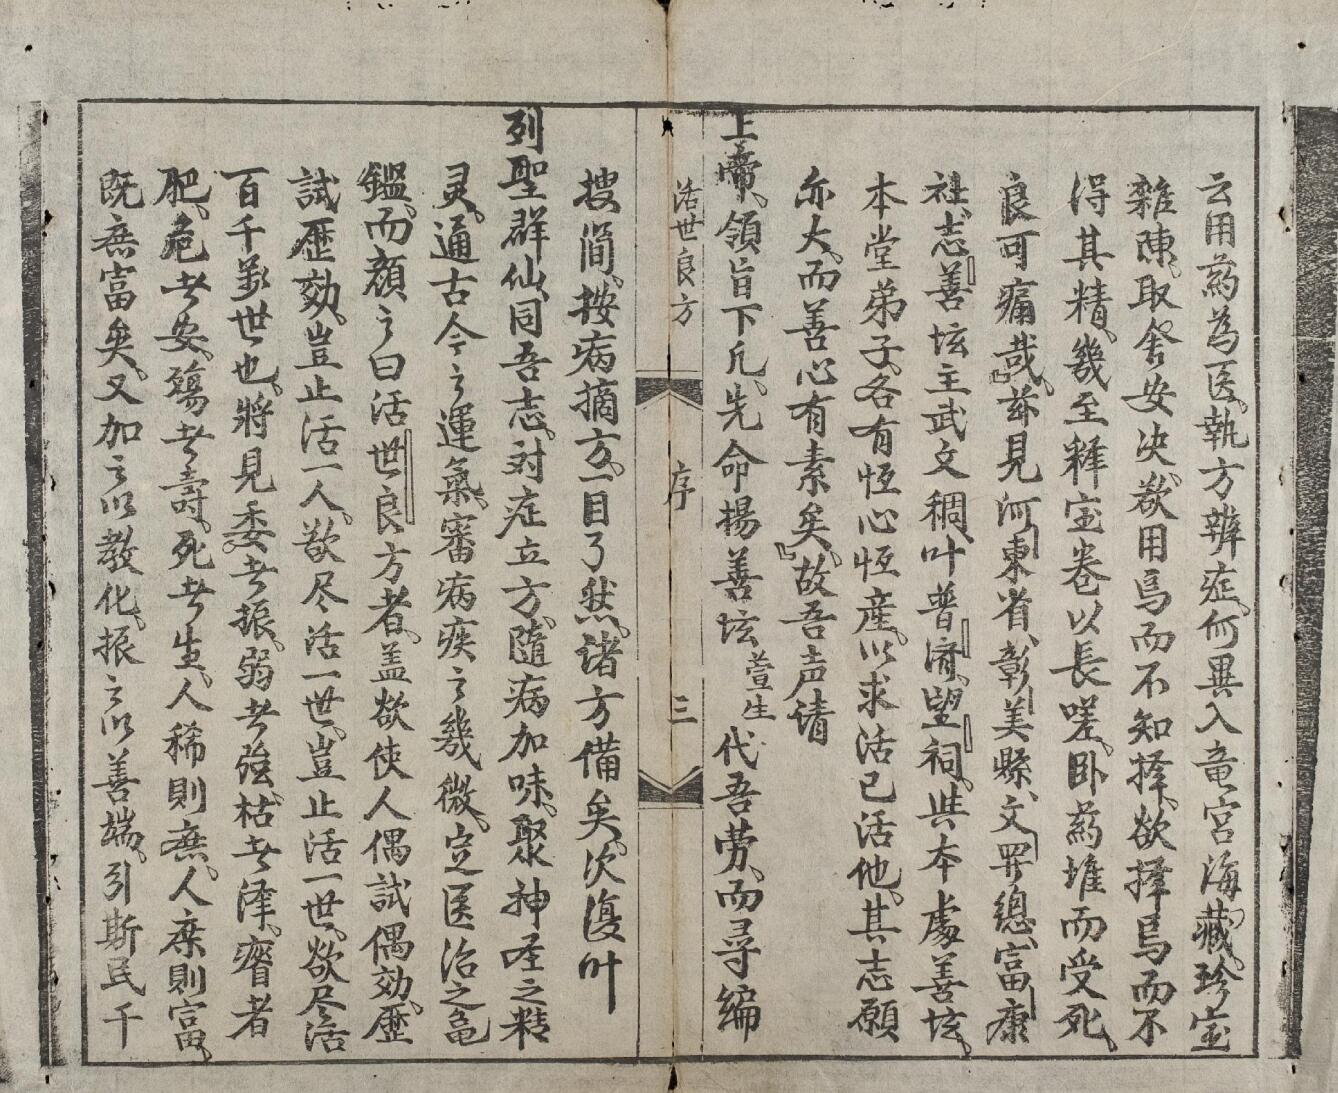 云用药為医執方辨症何異入竜宮海藏珍宝
雜陳取舍安决欲用焉而不知擇欲擇焉而不
得其精幾至釋宝卷以長嗟卧药堆而受死
良可痛哉茲見河東省彰美縣文罗總富康
社志善坛主武文稠叶普濟望祠共本處善坛
本堂弟子各有恆心恆産以求活已活他其志願
亦大而善心有素矣故吾声请
上帝領旨下凡先命揚善坛萱生代吾劳而尋編
活世良方 序 三
搜簡按病摘方一目了然诸方備矣次復叶
列聖群仙同吾志对症立方隨病加味聚神圣之精
灵通古今之運氣審病疾之幾微定医治之龟
鑑而顏之曰活世良方者盖欲使人偶試偶効歷
試歷効豈止活一人欲尽活一世豈止活一世欲尽活
百千萬世也將見委者振弱者强枯者泽瘠者
肥危者安殤者壽死者生人稀則庶人庶則富
既庶富矣又加之以教化振之以善端引斯民千